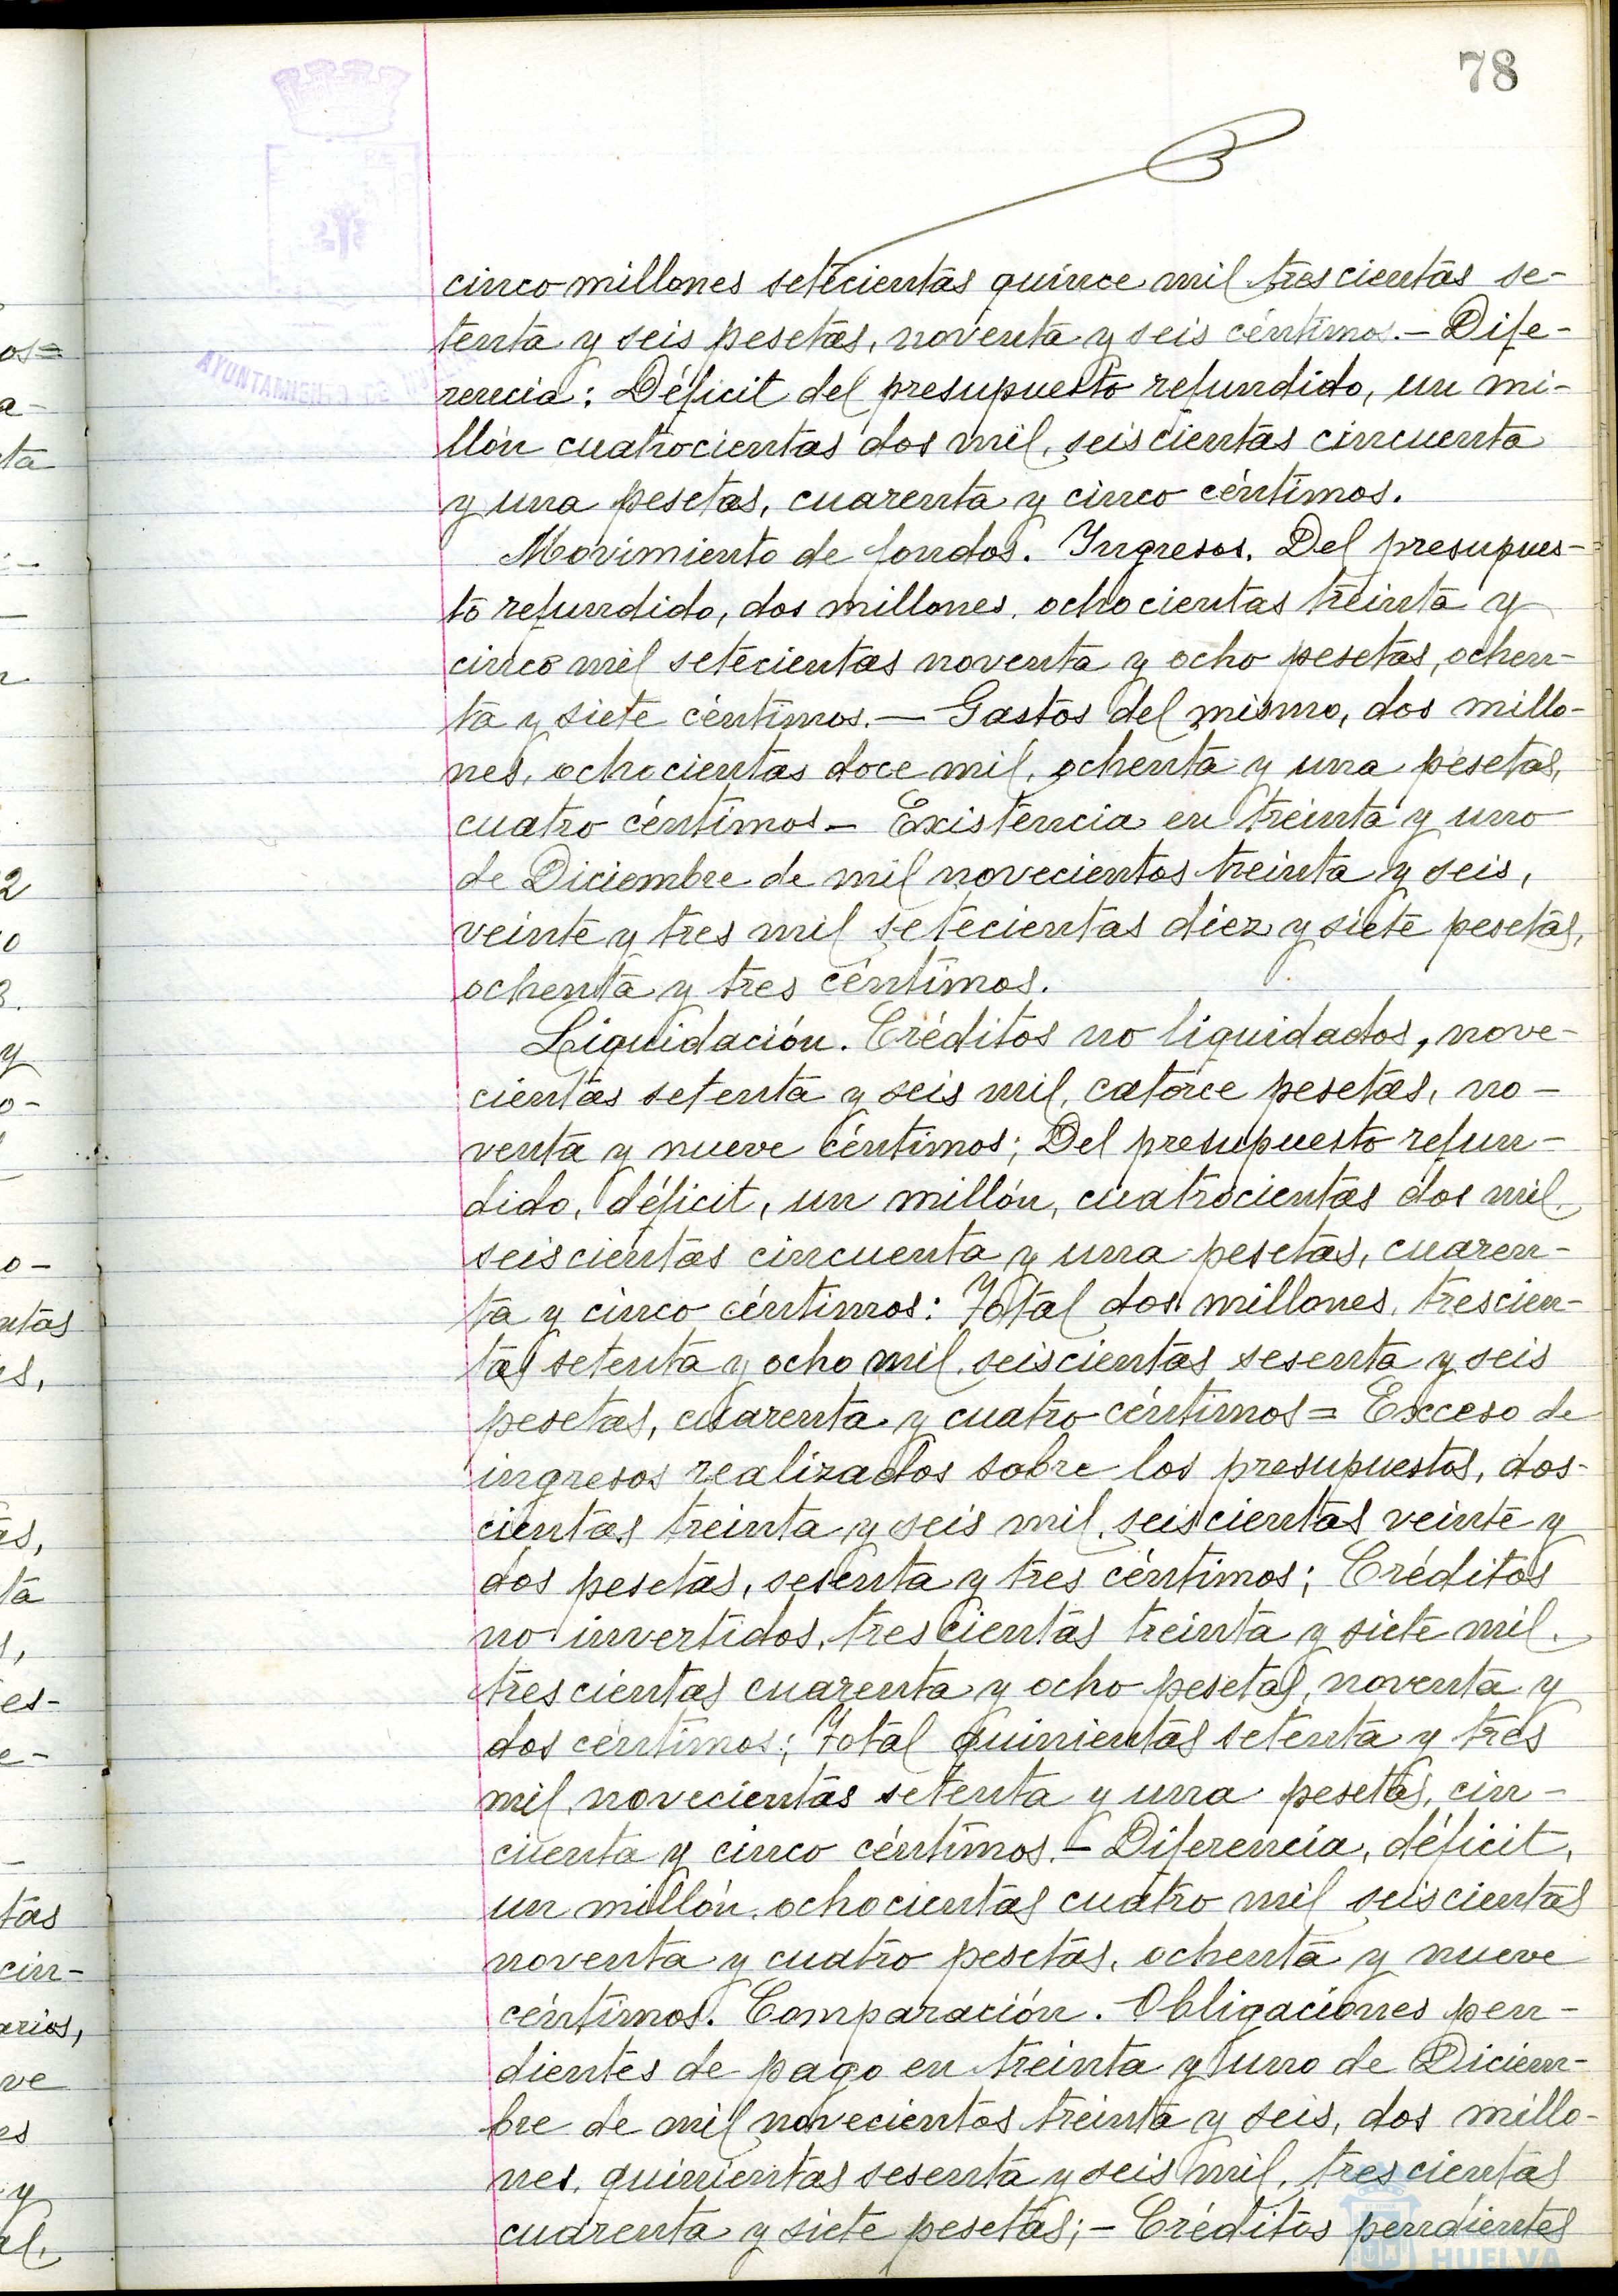 78
cinco millones setecientas quince mil trescientas se-
tenta y seis pesetas, noventa y seis céntimos.- Dife-
rencia: Déficit del presupuesto refundido, un mi-
llón cuatrocientas dos mil, seiscientas cincuenta
y una pesetas, cuarenta y cinco céntimos.
Movimiento de fondos. Ingresos. Del presupues-
to refundido, dos millones, ochocientas treinta y
cinco mil setecientas noventa y ocho pesetas, ochen-
ta y siete céntimos.- Gastos del mismo, dos millo-
nes, ochocientas doce mil, ochenta y una pesetas,
cuatro céntimos- Existencia en treinta y uno
de Diciembre de mil novecientos treinta y seis,
veinte y tres mil setecientas diez y siete pesetas,
ochenta y tres céntimos.
Liquidación. Créditos no liquidados, nove-
cientas setenta y seis mil, catorce pesetas, no-
venta y nueve céntimos; Del presupuesto refun-
dido, déficit, un millón, cuatrocientas dos mil,
seiscientas cincuenta y una pesetas, cuaren-
ta y cinco céntimos: Total dos millones, trescien-
tas setenta y ocho mil, seiscientas sesenta y seis
pesetas, cuarenta y cuatro céntimos= Exceso de
ingresos realizados sobre los presupuestos, dos-
cientas treinta y seis mil, seiscientas veinte y
dos pesetas, sesenta y tres céntimos; Créditos
no invertidos, trescientas treinta y siete mil,
trescientas cuarenta y ocho pesetas, noventa y
dos céntimos; Total quinientas setenta y tres
mil, novecientas setenta y una pesetas, cin-
cuenta y cinco céntimos.- Diferencia, déficit,
un millón, ochocientas cuatro mil seiscientas
noventa y cuatro pesetas, ochenta y nueve
céntimos. Comparación. Obligaciones pen-
dientes de pago en treinta y uno de Diciem-
bre de mil novecientos treinta y seis, dos millo-
nes, quinientas sesenta y seis mil, trescientas
cuarenta y siete pesetas;- Créditos pendientes
AYUNTAMIENTO DE
HUELVA